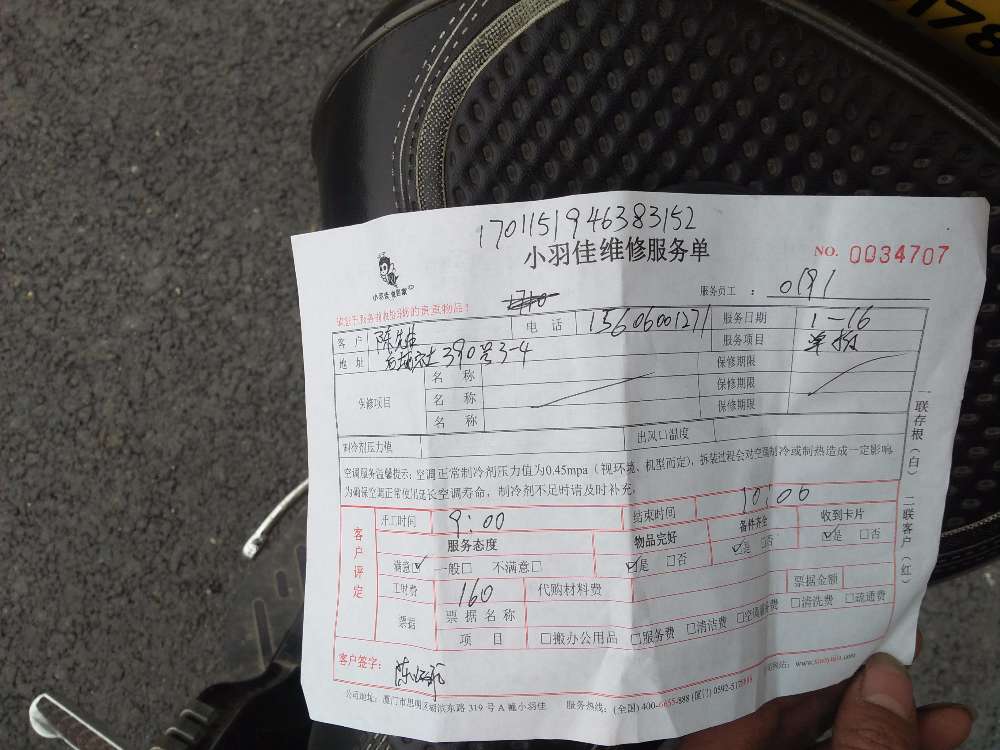 178
1701151946383152
小羽佳维修服务单
NO. 0034707
小羽佳
服务员工： 0191
的贵重物品！
客户 陈先生 电话 15606001271 服务日期 1-16
地址 390号3-4 服务项目
保修项目 名称 保修期限
名称 保修期限
名称 保修期限
制冷剂压力值 出风口温度
空调服务温馨提示：空调正常制冷剂压力值为0.45mpa（视环境、机型而定），拆装过程会对空调制冷或制热造成一定影响
为确保空调正常使用延长空调寿命，制冷剂不足时请及时补充。
客户评定 开工时间 9:00 结束时间 10:06
服务态度 物品完好 备件齐全 收到卡片
满意☑ 一般□ 不满意□ ☑是 □否 ☑是 □否 ☑是 □否
工时费 160 代购材料费
票据 票据名称 票据金额
项目 □搬办公用品 □服务费 □清洁费 □空调 费 □清洗费 □疏通费
客户签字： 陈
公司地址：厦门市思明区 滨东路319号A幢小羽佳 服务热线：（全国）400-6655-888（厦门）0592-5175
网站： www.xiaoyujia.com
一联存根（白） 二联客户（红）